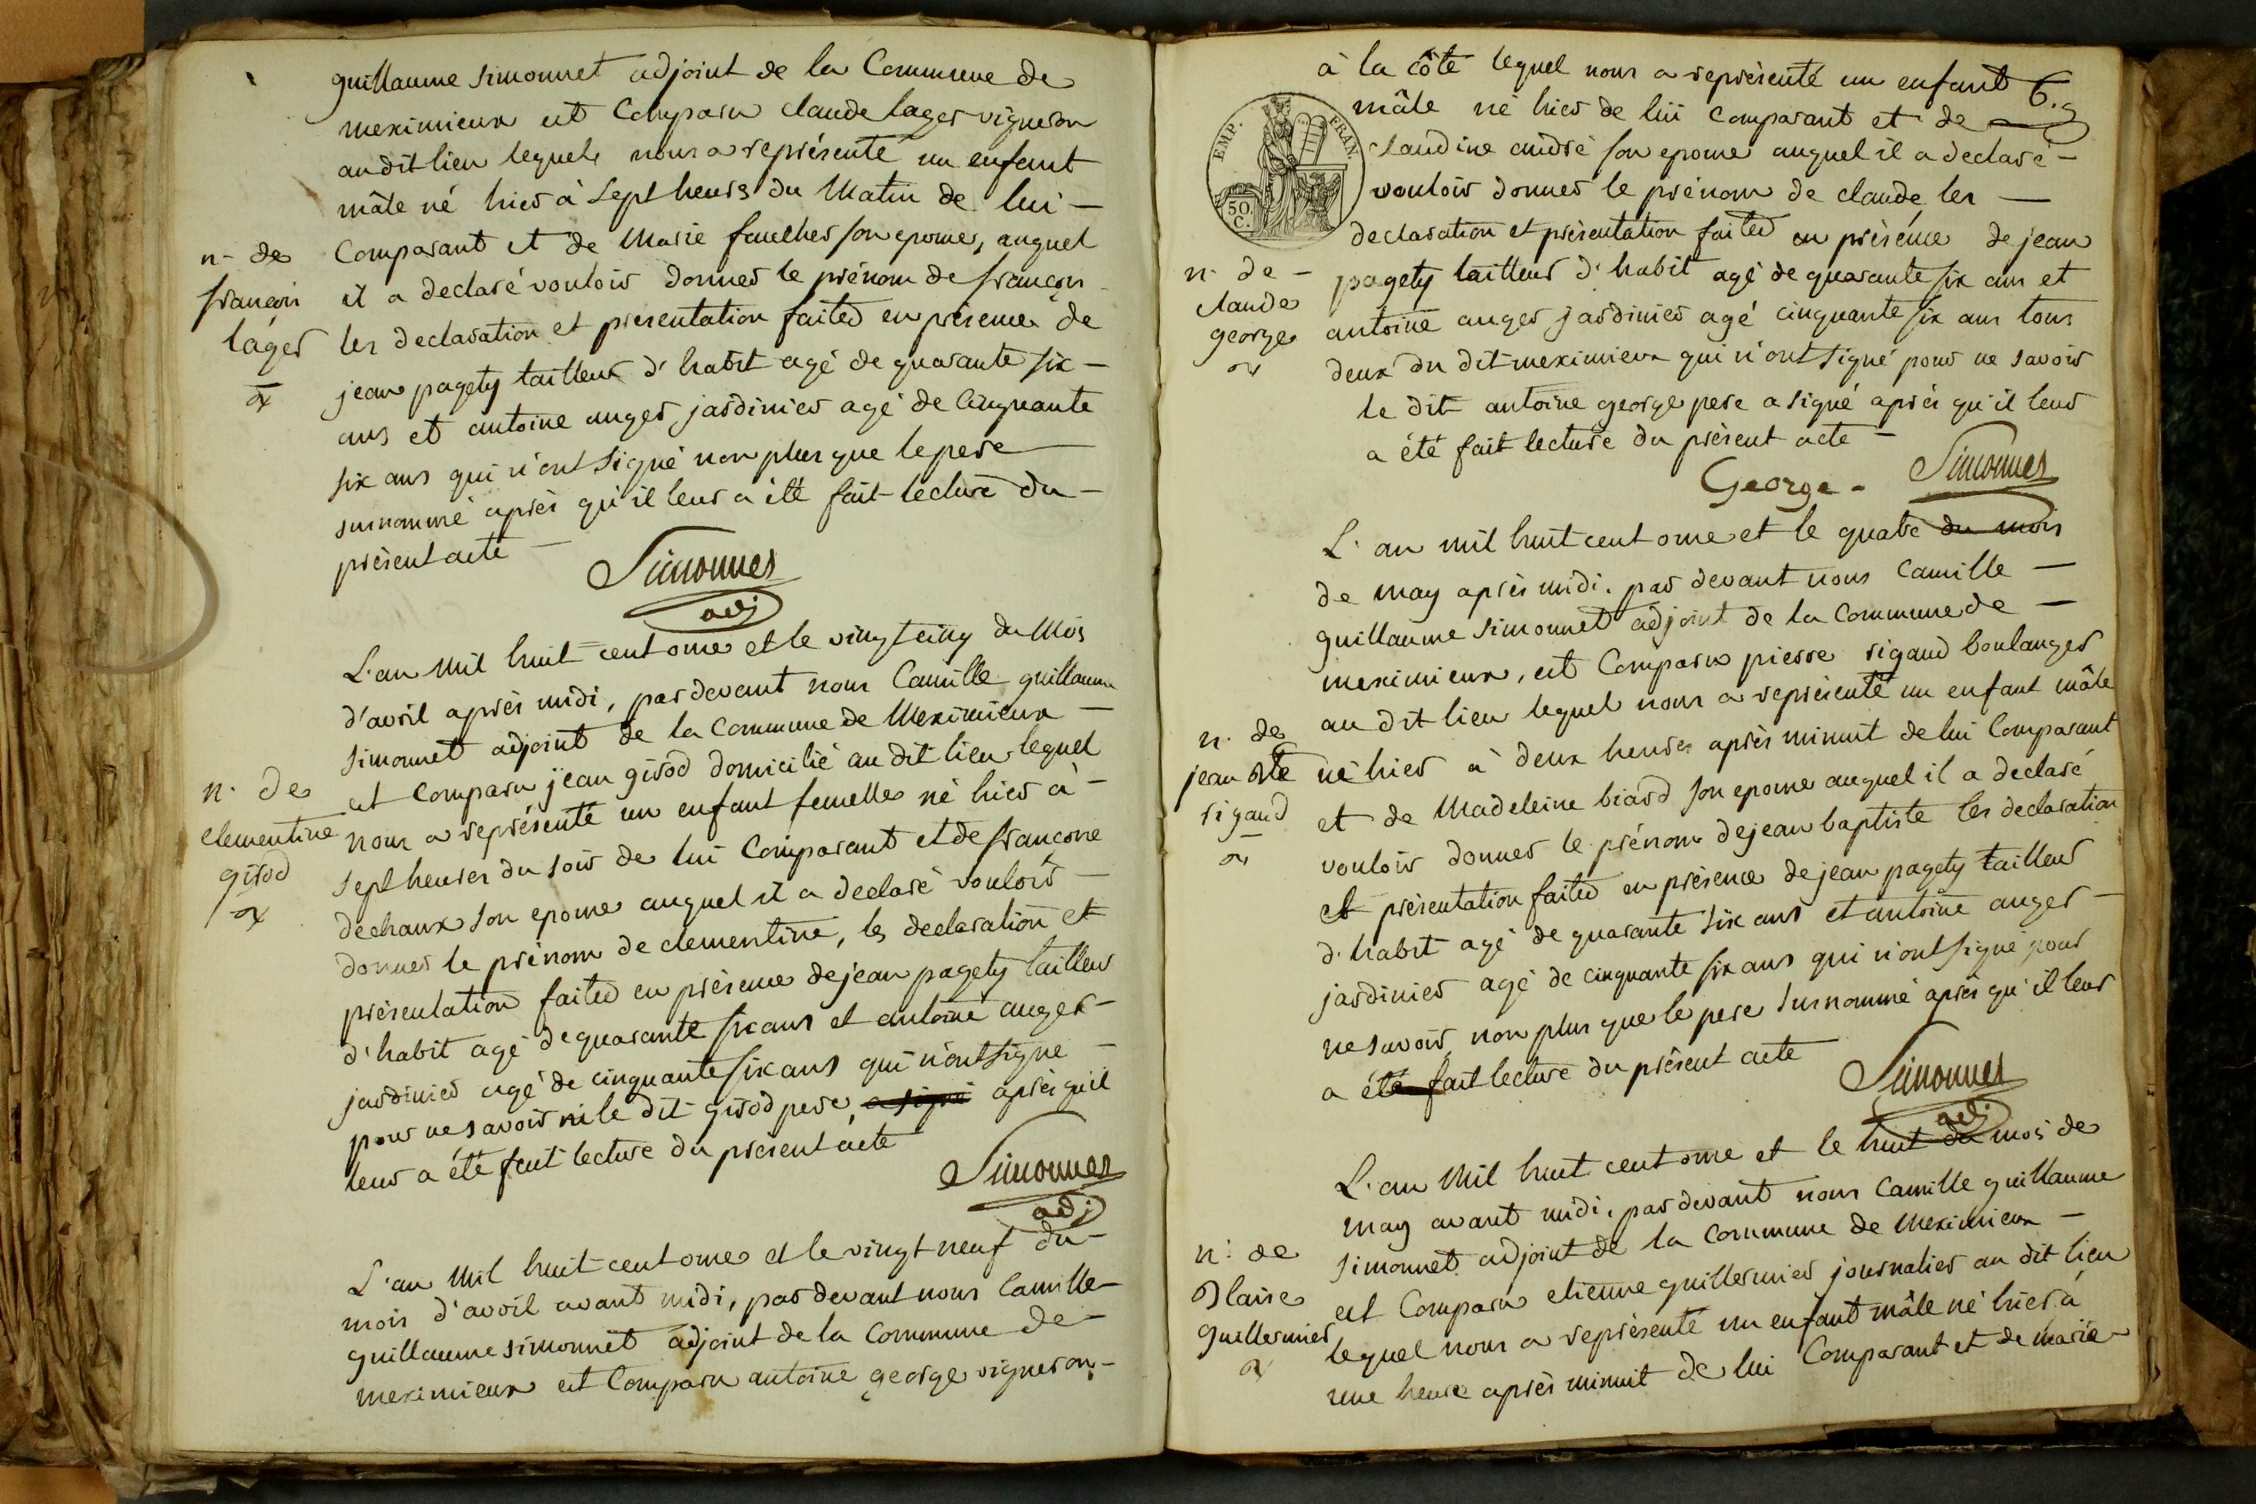 guillaume simonnet adjoint de la Commune de
meximieux est Comparu claude lager vigneron
au dit lieu lequel nous a représenté un enfant
mâle né hier à Sept heures du Matin de lui –
n– de
françois
láger
Comparant et de Marie faucher son epouse, auquel
il a declaré vouloir donner le prénom de françois
les declaration et presentation faites en presence de
jean pagety tailleur d'habit agé de quarante six –
ans et antoine auger jardinier agé de Cinquante
six ans qui n'ont Signé non plus que le pere
surnommé après qu'il leur a été fait lecture du –
présent acte –
Simonnet
adj
L'an Mil huit cent onze et le vingt cinq du Mois
d'avril après midi, par devant nous Camille guillaume
simonnet adjoint de la Commune de Meximieux –
n. de
clementine
girod
est Comparu jean girod domicilié au dit lieu lequel
nous a représenté un enfant femelle né hier à –
sept heures du soir de lui Comparant et de françoise
dechaux son epouse auquel il a declaré vouloir –
donner le prénom de clementine, les declaration et
présentation faites en présence de jean pagety tailleur
d'habit agé de quarante six ans et antoine auger –
jardinier agé de cinquante six ans qui n'ont signé –
pour ne savoir ni le dit girod pere, a signé après qu'il
leur a été fait lecture du présent acte
Simonnet
adj
L'an Mil huit cent onze et le vingt neuf du –
mois d'avril avant midi, par devant nous Camille –
guillaume simonnet adjoint de la Commune de –
meximieux est Comparu antoine george vigneron –
6.
à la côte lequel nous a représenté un enfant
mâle né hier de lui Comparant et de
EMP. FRAN.
50. C.
claudine andré son epouse auquel il a declaré –
vouloir donner le prénom de claude les –
declaration et présentation faites en présence de jean
n. de –
claude
george
pagety tailleur d'habit agé de quarante six ans et
antoine auger jardinier agé cinquante six ans tous
deux du dit meximieux qui n'ont signé pour ne savoir
le dit antoine george pere a signé après qu'il leur
a été fait lecture du présent acte –
George – Simonnet
L'an mil huit cent onze et le quatre du mois
de may après midi. par devant nous Camille –
guillaume simonnet adjoint de la Commune de –
meximieux, est Comparu pierre rigaud boulanger
au dit lieu lequel nous a représenté un enfant mâle
n. de
jean bte
rigaud
né hier à deux heures après minuit de lui Comparant
et de Madeleine biard son epouse auquel il a declaré
vouloir donner le prénom de jean baptiste les declaration
et présentation faites en présence de jean pagety tailleur
d'habit agé de quarante six ans et antoine auger –
jardinier agé de cinquante six ans qui n'ont signé pour
ne savoir, non plus que le pere surnommé après qu'il leur
a été fait lecture du présent acte
Simonnet
adj
L'an Mil huit cent onze et le huit du mois de
may avant midi. par devant nous Camille guillaume
simonnet adjoint de la Commune de Meximieux –
n. de
Blaise
guillermier
est Comparu etienne guillermier journalier au dit lieu
lequel nous a représenté un enfant mâle né hier à
une heure après minuit de lui Comparant et de marie